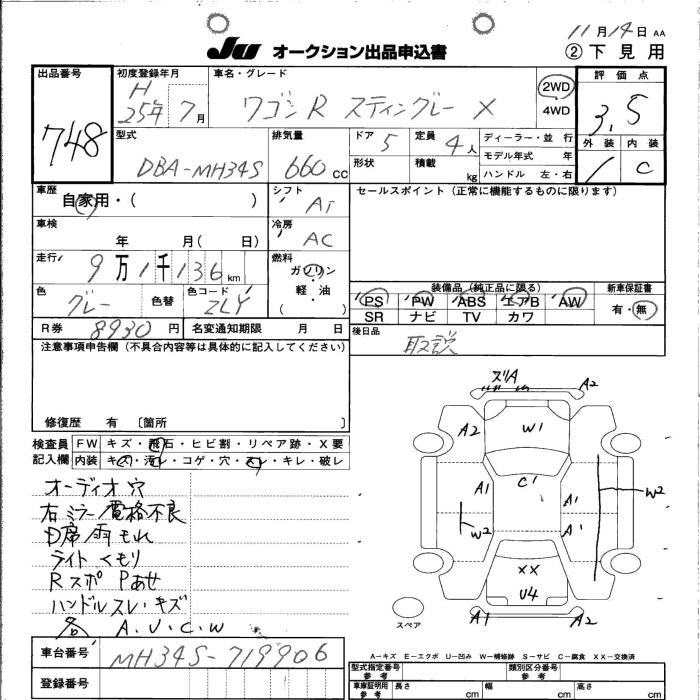 11月14日 AA
JU オークション出品申込書 ②下見用
出品番号 748
初度登録年月 H 25年 7月
車名・グレード ワゴンR スティングレー X
2WD
4WD
評価点 3.5
外装 1 内装 C
型式 DBA-MH34S
排気量 660cc
ドア 5 定員 4人
形状 積載 kg
ディーラー・並行
モデル年式 年
ハンドル 左・右
車歴 自家用・( )
シフト AT
セールスポイント(正常に機能するものに限ります)
車検 年 月( 日)
冷房 AC
走行 9万1千136km
燃料 ガソリン
軽・油
( )
色 グレー 色替 色コード ZLY
装備品(純正品に限る) 新車保証書
PS PW ABS エアB AW 有・無
SR ナビ TV カワ
R券 8930円 名変通知期限 月 日
後日品 取説
注意事項申告欄(不具合内容等は具体的に記入してください)
修復歴 有 〔箇所 〕
検査員記入欄
FW キズ・飛石・ヒビ割・リペア跡・X要
内装 キズ・汚レ・コゲ・穴・スレ・キレ・破レ
オーディオ穴
右ミラー電格不良
D席雨もれ
ライトくもり
Rスポ Pあせ
ハンドルスレ・キズ
各 A.U.C.W
ズリA A2
A2 W1 A2
A1 C1 A1 W2
W2 A1
XX
U4
A1 A2
スペア
A-キズ E-エクボ U-凹み W-補修跡 S-サビ C-腐食 XX-交換済
車台番号 MH34S-719906
登録番号
型式指定番号 参考 類別区分番号 参考
車庫証明用 参考 長さ cm 幅 cm 高さ cm